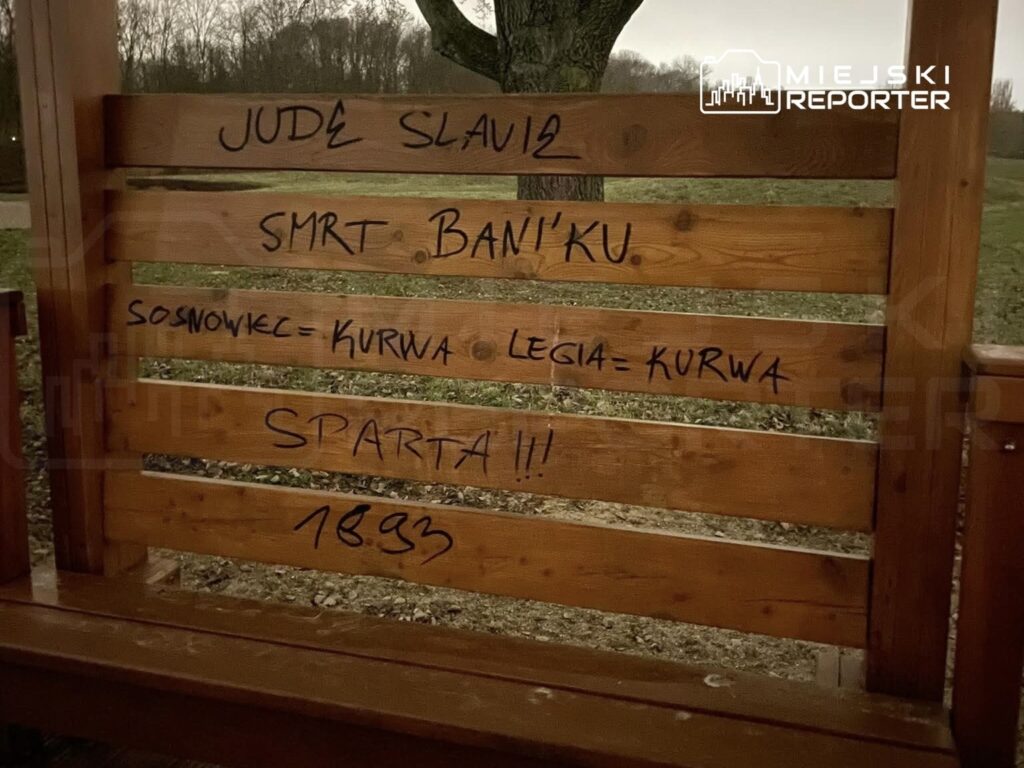 MIEJSKI
REPORTER
JUDE SLAVIE
SMRT BANÍKU
SOSNOWIEC = KURWA LEGIA = KURWA
SPARTA!!!
1893